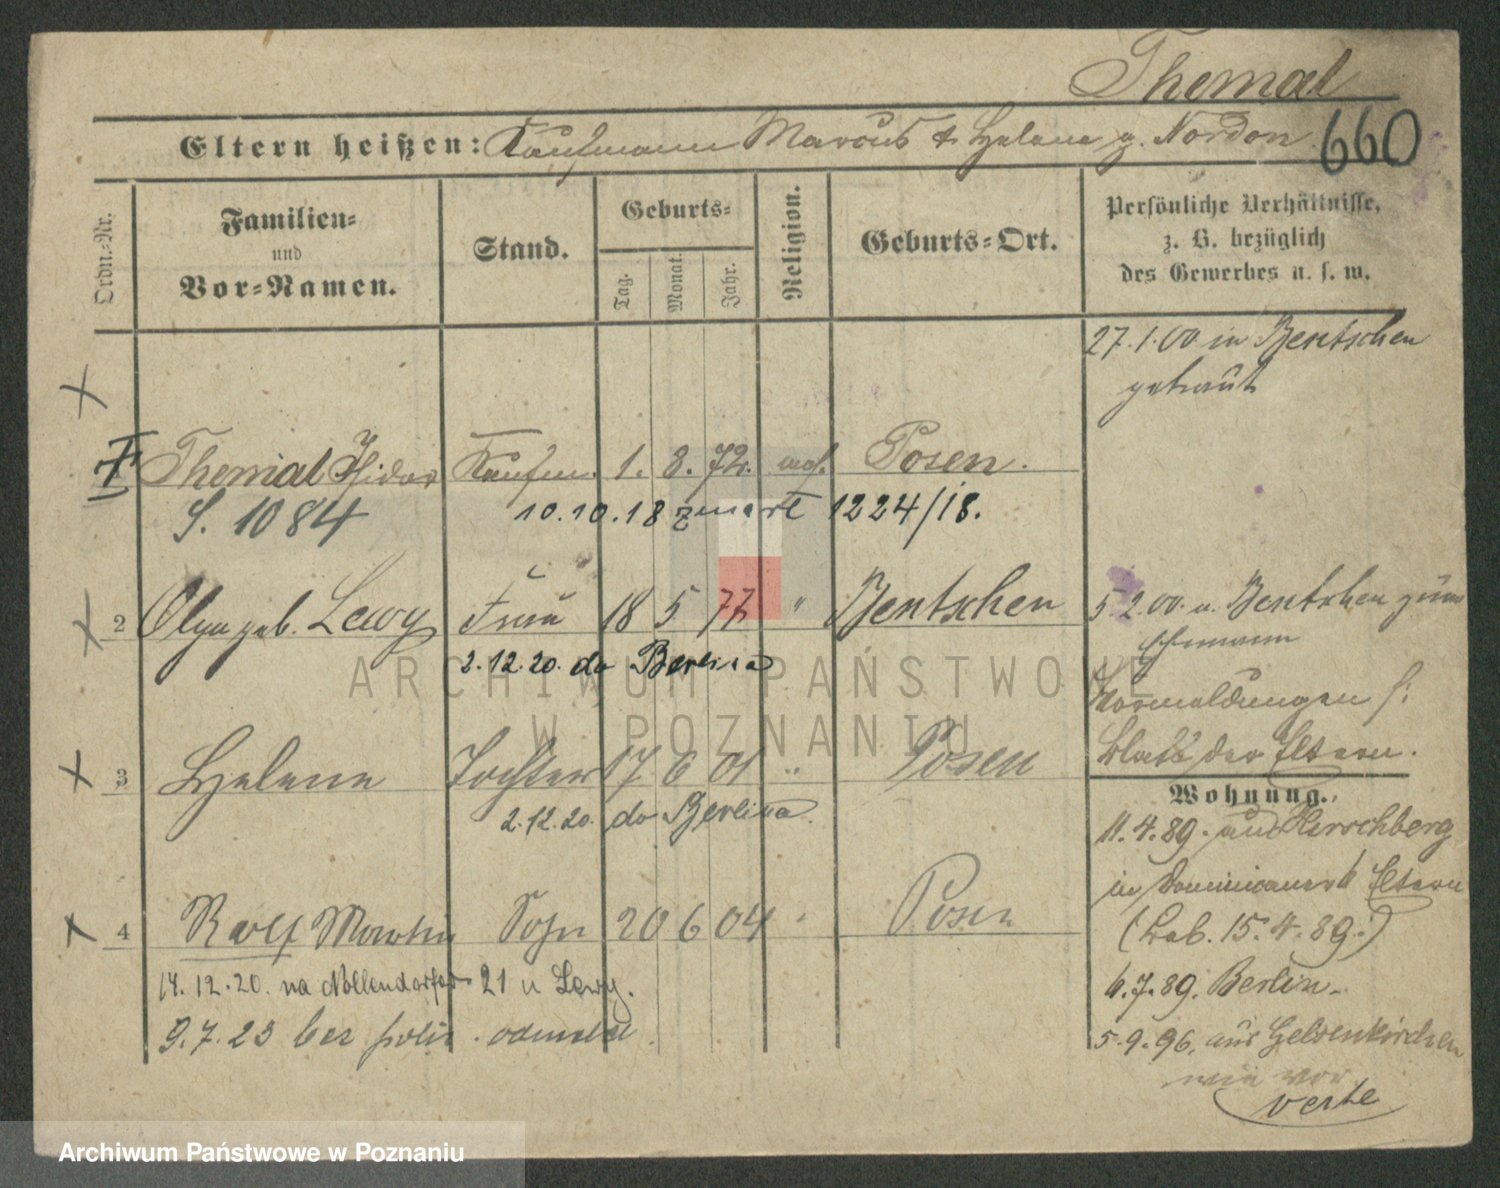 Themal
Eltern heißen: Kaufmann Marcus & Helene g. Nordon 660
Ordn.-Nr.
Familien-
und
Vor-Namen.
Stand.
Geburts-
Tag.
Monat.
Jahr.
Religion.
Geburts-Ort.
Persönliche Verhältnisse,
z. B. bezüglich
des Gewerbes u. s. w.
27.1.00 in Bentschen
getraut
Themal Isidor Kaufm. 1. 8. 72. mos. Posen.
S. 1084 10.10.18 zmarł 1224/18.
2 Olga geb. Lewy Frau 18 5 77 " Bentschen
2.12.20. do Berlina
5 2.00. v. Bentschen zum
Ehemann
Vormeldungen s:
Blatt der Eltern.
3 Helene Tochter 17 6 01 " Posen
2.12.20. do Berlina.
Wohnung.
11.4.89. aus Hirschberg
in Eltern
(Bab. 15.4.89.)
4 Rolf Martin Sohn 20 6 04 " Posen
14.12.20. na 21 u Lewy.
9.7.23 bez .
6.7.89. Berlin.
5.9.96. aus Gelsenkirchen
wie vor
verte
ARCHIWUM PAŃSTWOWE
W POZNANIU
Archiwum Państwowe w Poznaniu